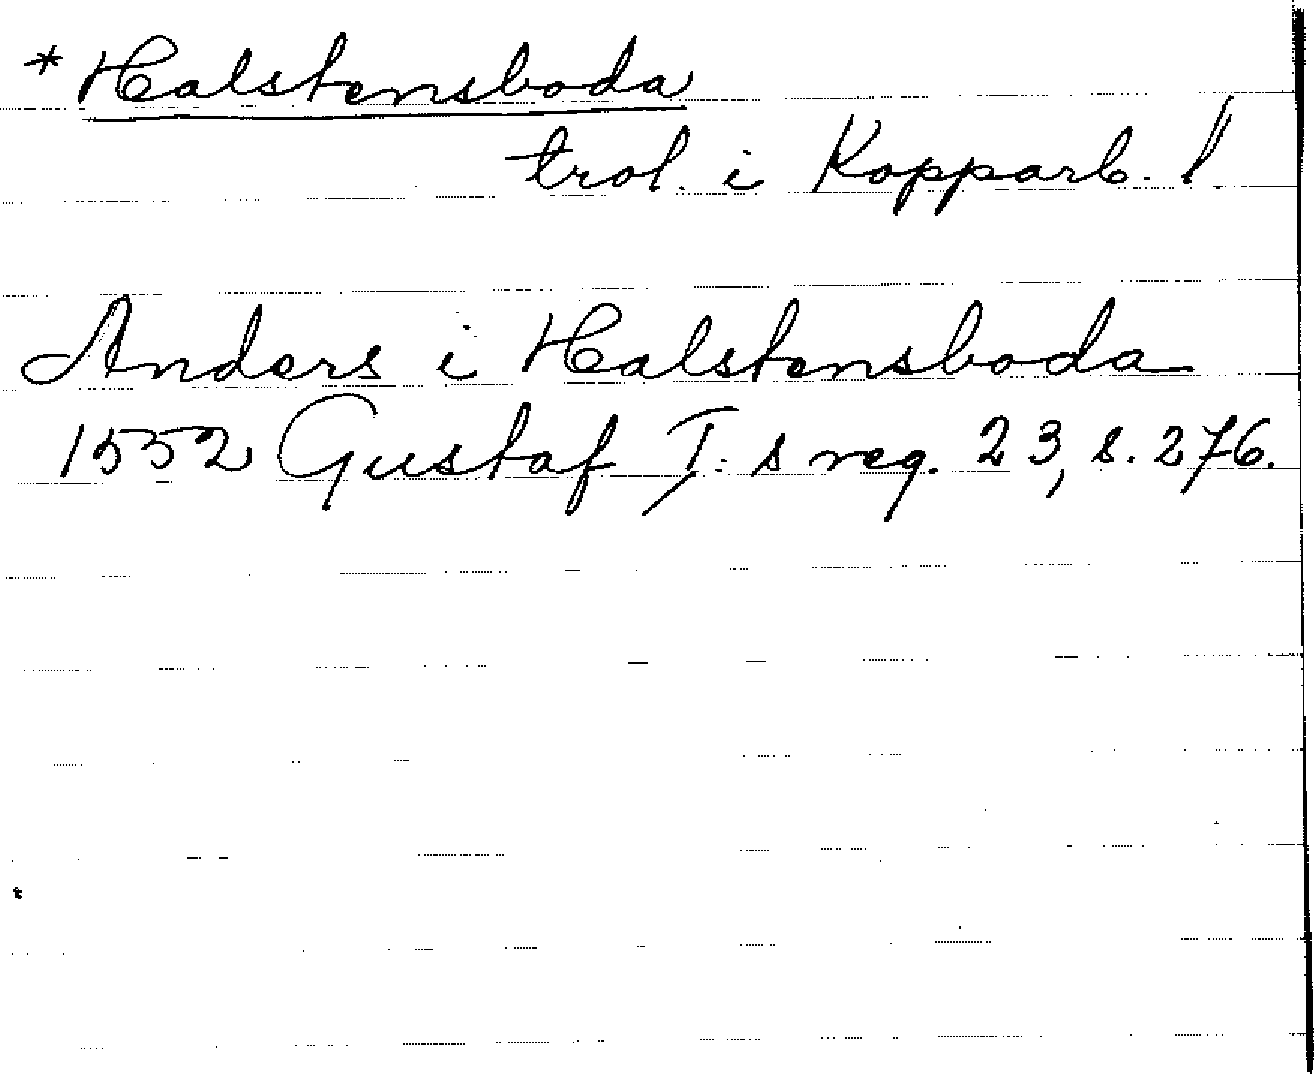 * Halstensboda
trol. i Kopparb. l.
Anders i Halstensboda
1552 Gustaf I:s reg. 23, s. 276.